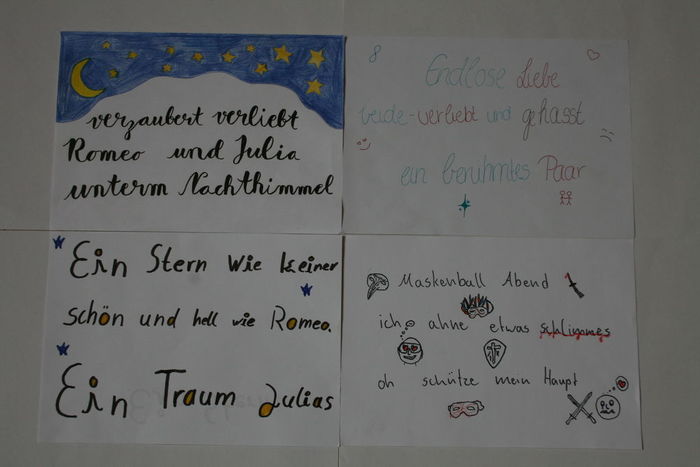 verzaubert verliebt
Romeo und Julia
unterm Nachthimmel
Endlose Liebe
beide-verliebt und gehasst
ein berühmtes Paar
Ein Stern wie keiner
schön und hell wie Romeo.
Ein Traum Julias
Maskenball Abend
ich ahne etwas schlimmes
oh schütze mein Haupt